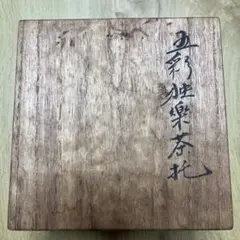 五彩独楽茶托